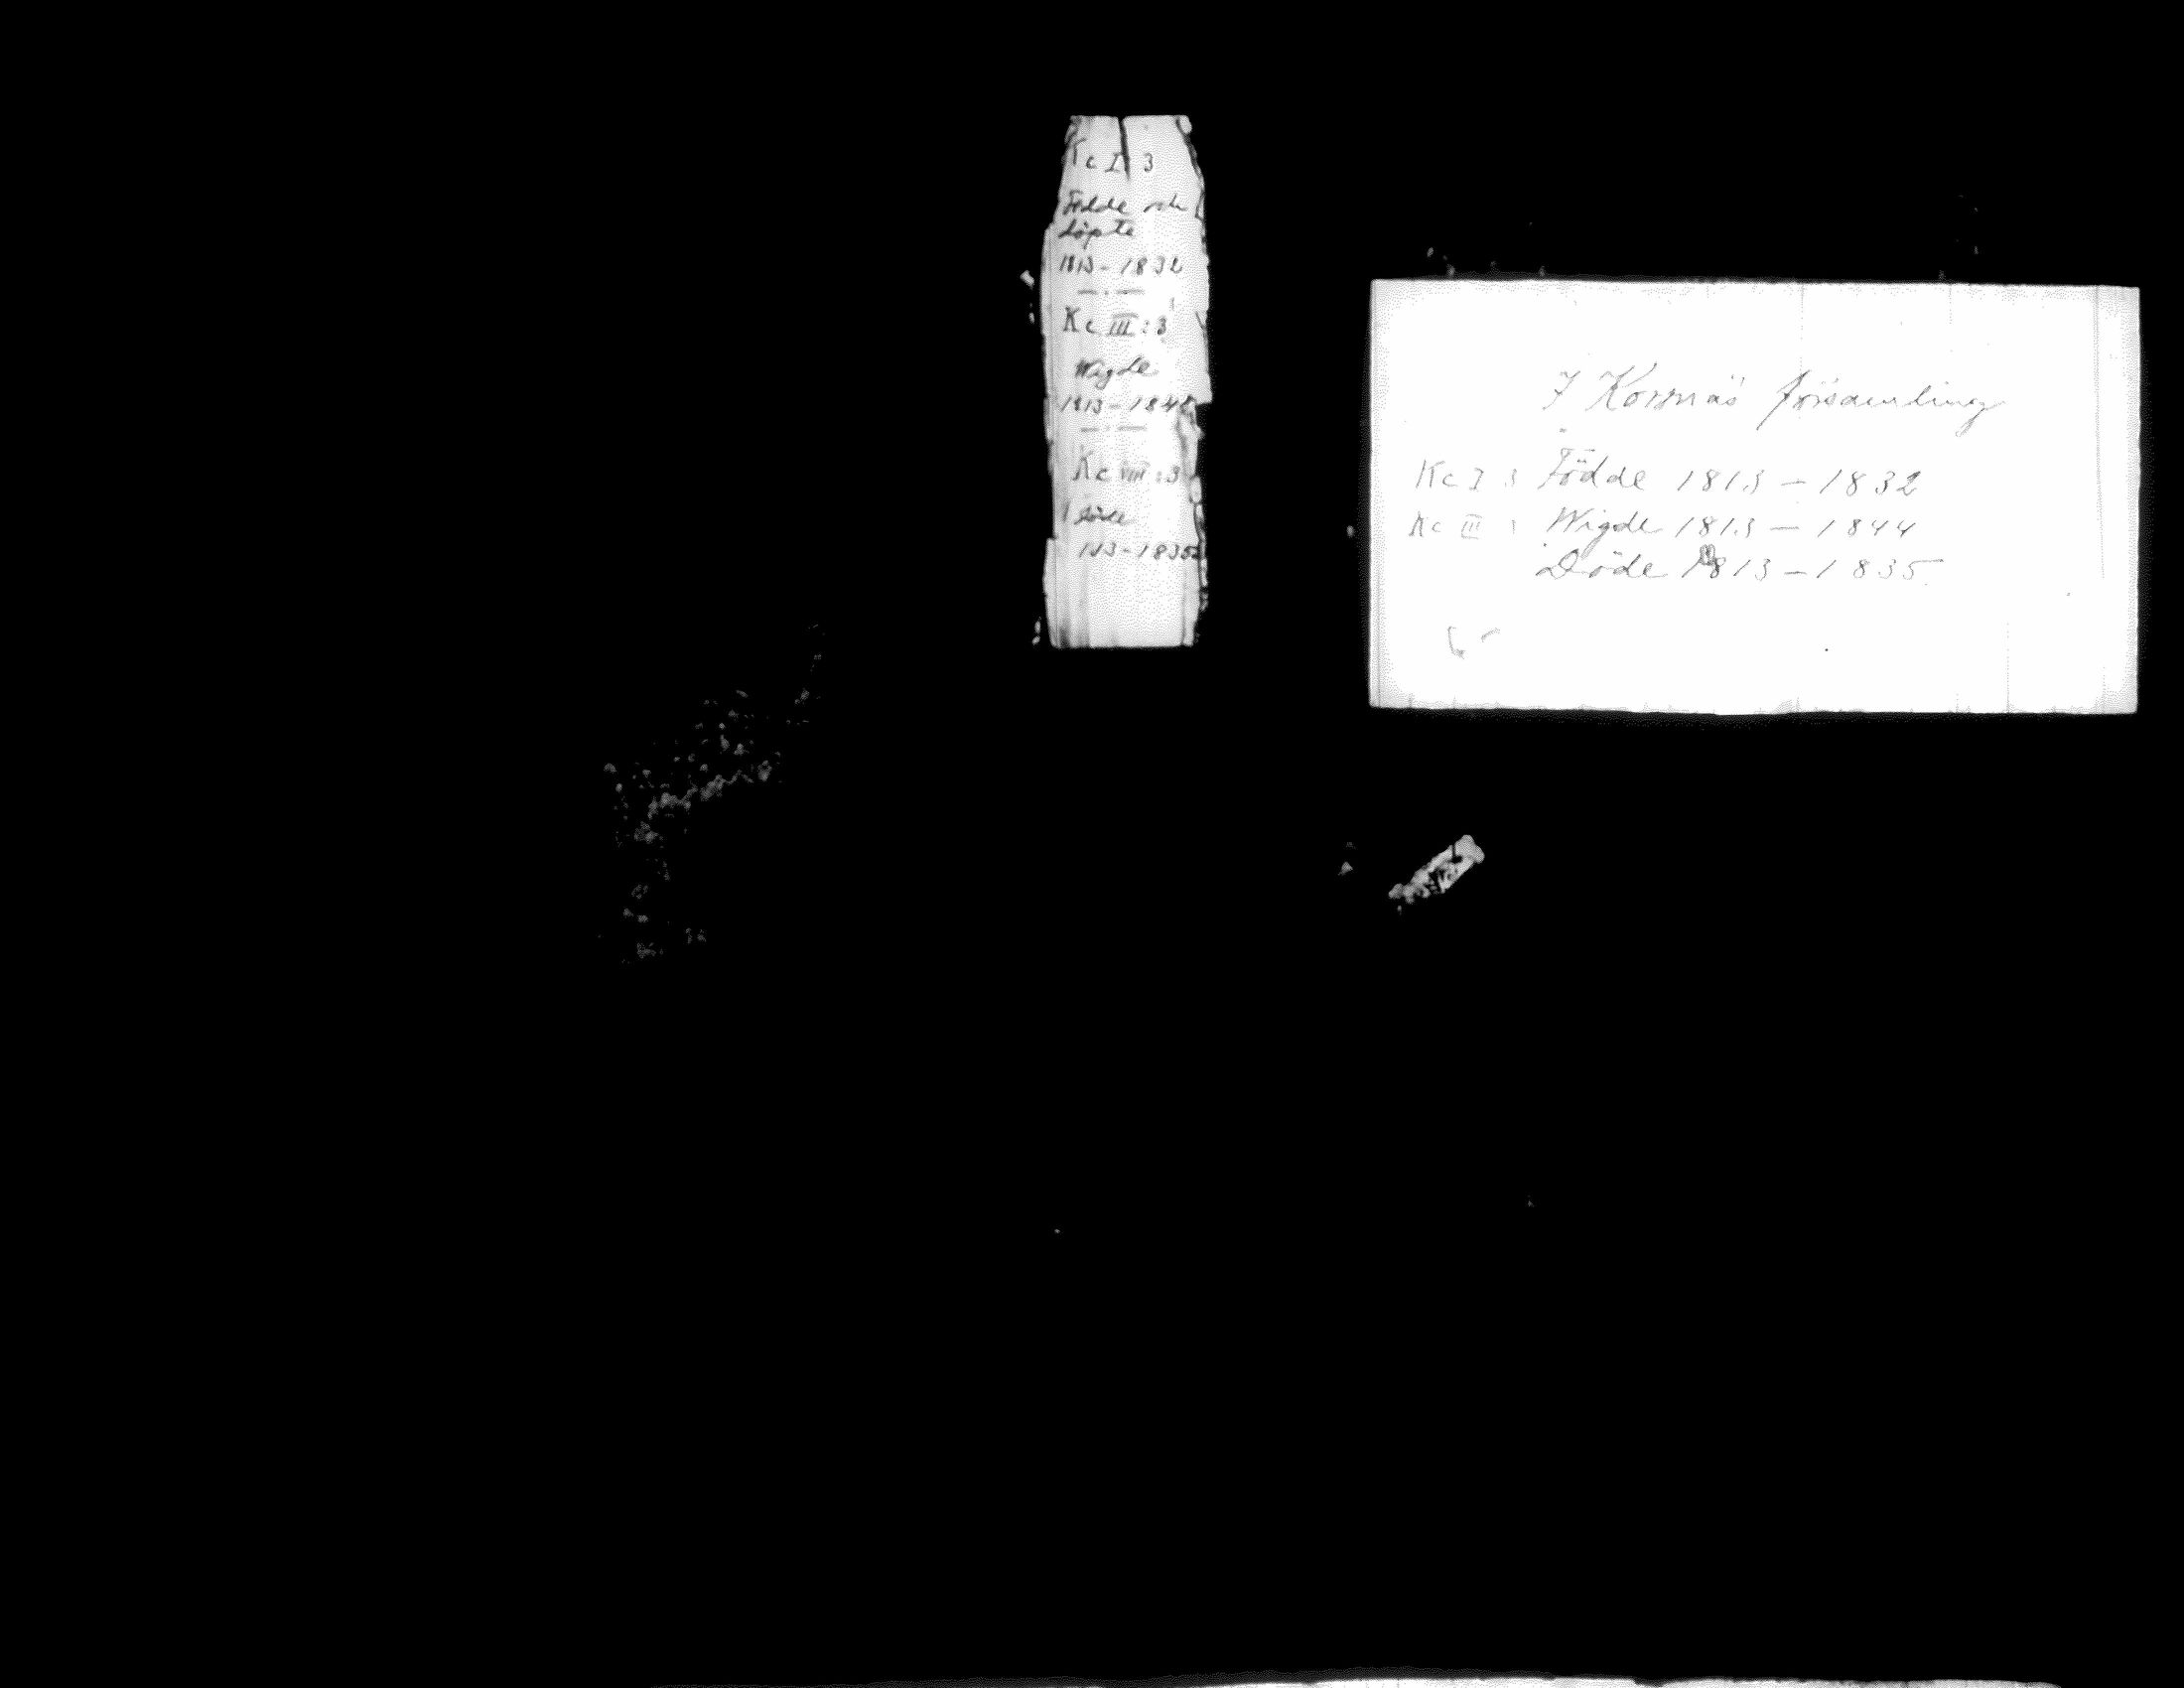 Kc I 3
Födde och
döpte
1813-1832
Kc III:3
Wigde
1813-184
Kc VIII:3
Döde
1813-1835
I Korsnäs församling
Kc I 3 Födde 1813-1832
Kc III Wigde 1813-1844
Döde 1813-1835